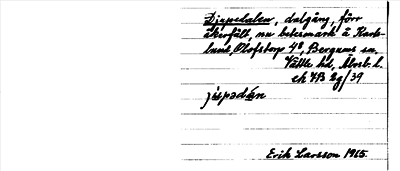 Djupedalen, dalgång, förr
åkerfält, nu betesmark å
Olofstorp 4⁸, Bergums sn.
Vättle hd, Älvsb. l.
ek 7B 2g/39
Erik Larsson 1965.